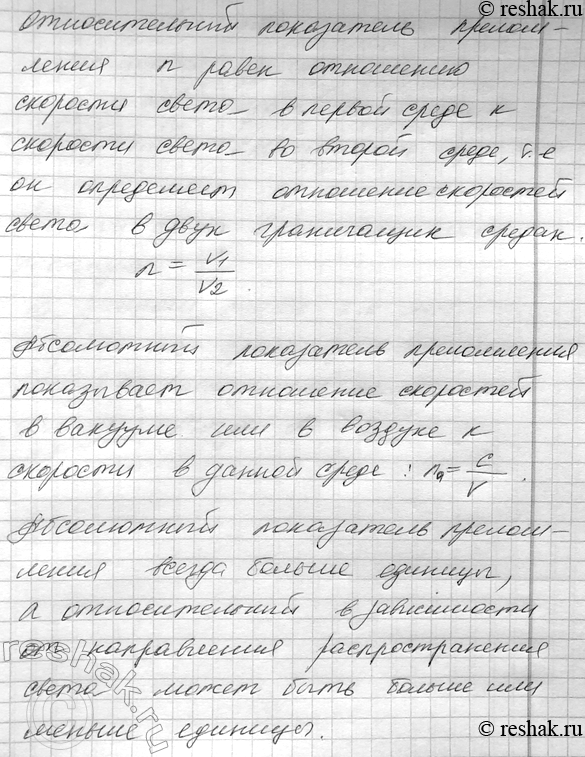 Относительный показатель прелом-
ления n равен отношению
скорости света в первой среде к
скорости света во второй среде, т.е
он определяет отношение скоростей
света в двух граничащих средах.
n = V1/V2
Абсолютный показатель преломления
показывает отношение скоростей
в вакууме или в воздухе к
скорости в данной среде: na = c/V.
Абсолютный показатель прелом-
ления всегда больше единицы,
а относительный в зависимости
от направления распространения
света может быть больше или
меньше единицы.
reshak.ru
reshak.ru
© reshak.ru